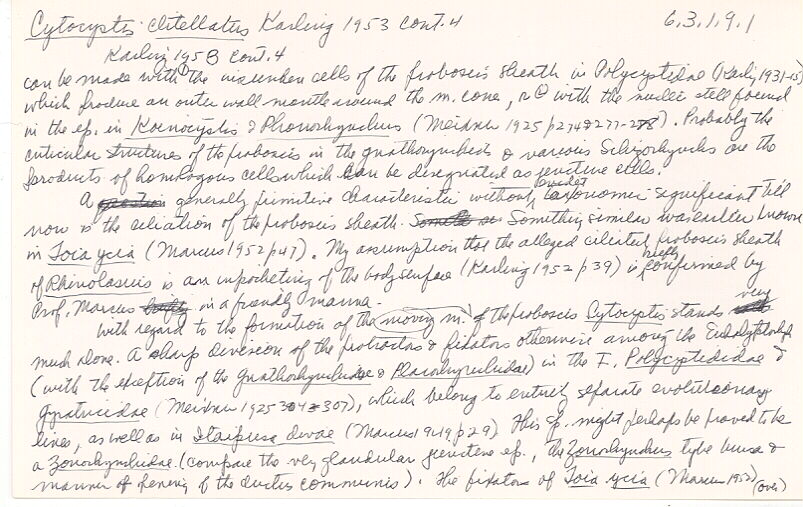 Cytocystis clitellatus Karling 1953 cont. 4 6.3.1.9.1
Karling 1953 cont. 4
can be made with the sunken cells of the proboscis sheath in Polycystidae (Karling 1931
which produce an outer wall mantle around the m. cone, with the nuclei still found
in the ep. in Koinocystis & Phonorhynchus (Meixner 1925 p 234 & 277-278). Probably the
cuticular structures of the proboscis in the gnathorhynchids & various Schizorhynchs are the
products of homologous cells which can be designated as juncture cells.
A generally primitive characteristic without taxonomic significance till
now is the ciliation of the proboscis sheath. Something similar was earlier known
in Toia ycia (Marcus 1952 p 47). My assumption that the alleged ciliated proboscis sheath
of Rhinolasius is an inpocketing of the body surface (Karling 1952 p 39) is confirmed by
Prof. Marcus in a friendly manner.
With regard to the formation of the moving m. of the proboscis Cytocystis stands very
much alone. A sharp division of the protractors & fixators otherwise among the Eukalyptorhynchs
(with the exception of the Gnathorhynchidae & Placorhynchidae) in the F. Polycystididae &
Gyratricidae (Meixner 1925 304 & 307), which belong to entirely separate evolutionary
lines, as well as in Itaipusa divae (Marcus 1949 p 29). This sp. might perhaps be proved to be
a Zonorhynchidae. (compare the very glandular juncture ep., the Zonorhynchus type bursa &
manner of opening of the ductus communis). The fixators of Toia ycia (Marcus 1952)
(over)